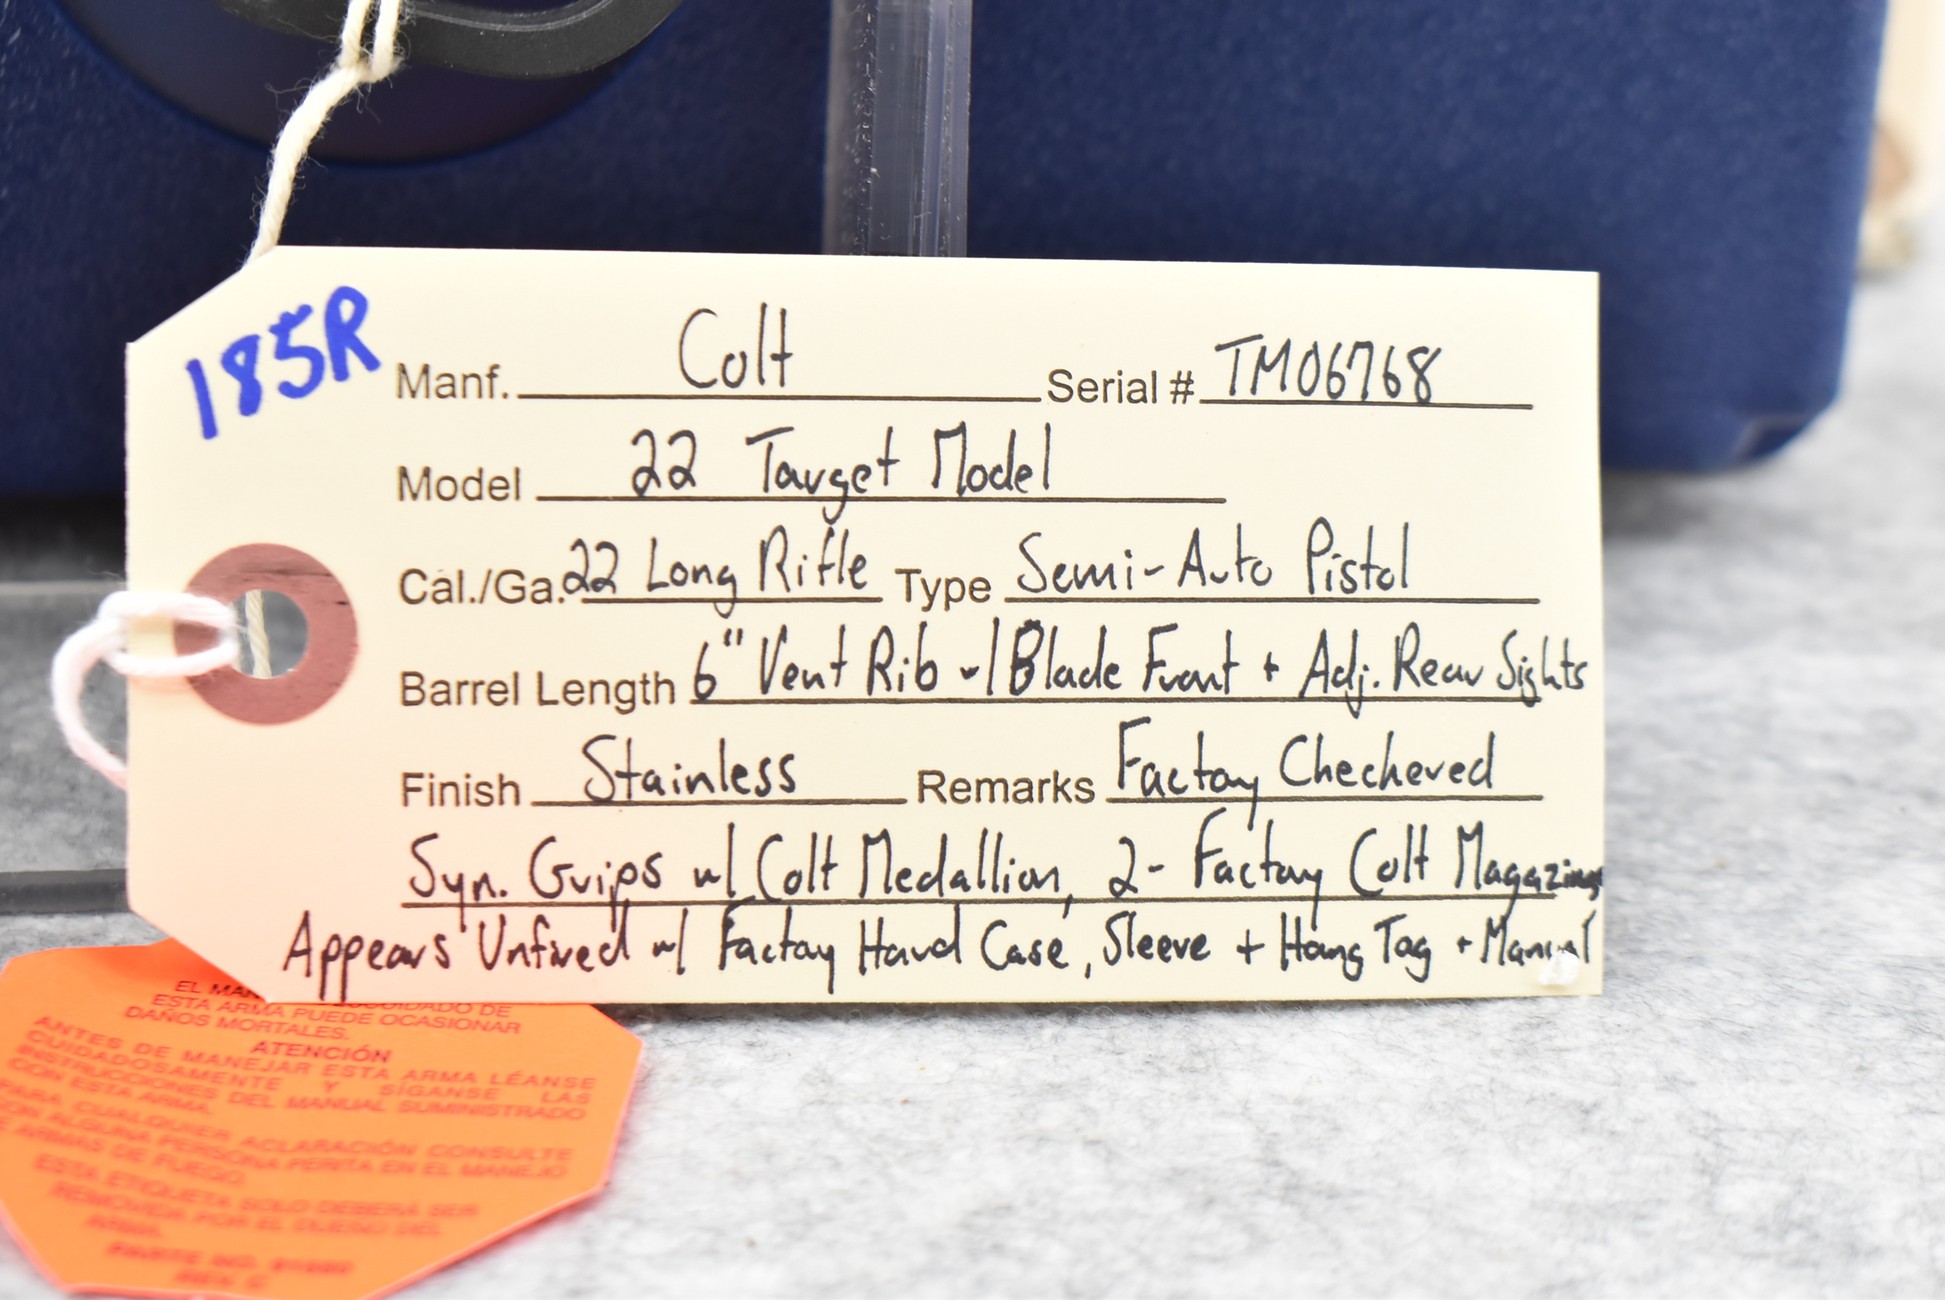 185R
Manf. Colt Serial # TM06768
Model 22 Target Model
Cal./Ga. 22 Long Rifle Type Semi-Auto Pistol
Barrel Length 6" Vent Rib w/ Blade Front + Adj. Rear Sights
Finish Stainless Remarks Factory Checkered
Syn. Grips w/ Colt Medallion, 2- Factory Colt Magazines
Appears Unfired w/ Factory Hard Case, Sleeve + Hang Tag + Manual
EL MAN
ESTA ARMA PUEDE OCASIONAR
DAÑOS MORTALES.
ATENCIÓN
ANTES DE MANEJAR ESTA ARMA LÉANSE
CUIDADOSAMENTE Y SÍGANSE LAS
INSTRUCCIONES DEL MANUAL SUMINISTRADO
CON ESTA ARMA.
PARA CUALQUIER ACLARACIÓN CONSULTE
CON ALGUNA PERSONA PERITA EN EL MANEJO
DE ARMAS DE FUEGO.
ESTA ETIQUETA SOLO DEBERÁ SER
REMOVIDA POR EL DUEÑO DEL
ARMA.
PARTE NO.
REV. C